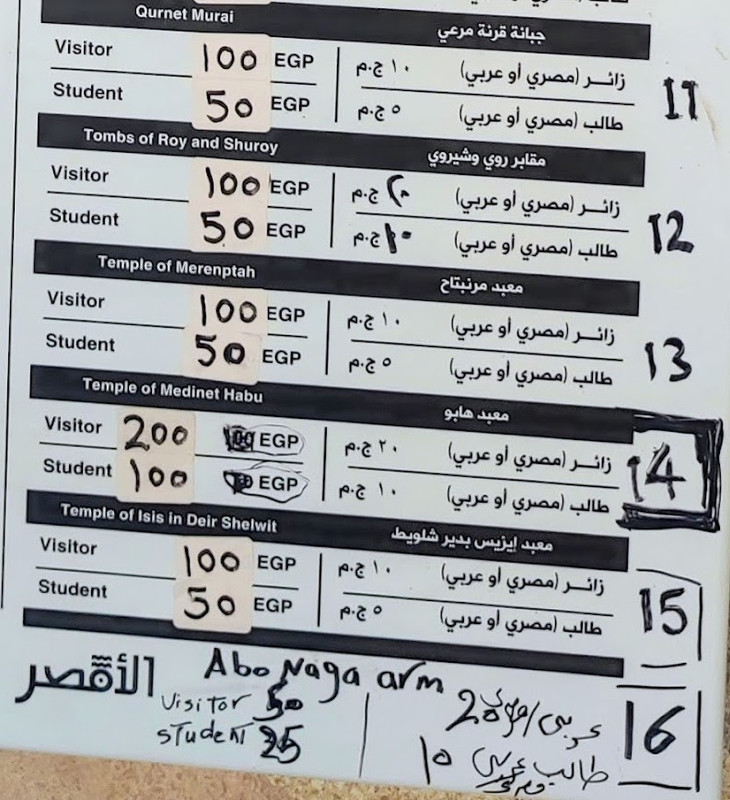 طالب (مصري أو عربي)
Qurnet Murai جبانة قرنة مرعي
Visitor 100 EGP ١٠ ج.م زائـــر (مصري أو عربي)
11
Student 50 EGP ٥ ج.م طالب (مصري أو عربي)
Tombs of Roy and Shuroy مقابر روي وشيروي
Visitor 100 EGP ٢٠ ج.م زائـــر (مصري أو عربي)
12
Student 50 EGP ١٠ ج.م طالب (مصري أو عربي)
Temple of Merenptah معبد مرنبتاح
Visitor 100 EGP ١٠ ج.م زائـــر (مصري أو عربي)
13
Student 50 EGP ٥ ج.م طالب (مصري أو عربي)
Temple of Medinet Habu معبد هابو
Visitor 200 100 EGP ٢٠ ج.م زائـــر (مصري أو عربي)
14
Student 100 EGP ١٠ ج.م طالب (مصري أو عربي)
Temple of Isis in Deir Shelwit معبد إيزيس بدير شلويط
Visitor 100 EGP ١٠ ج.م زائـــر (مصري أو عربي)
15
Student 50 EGP ٥ ج.م طالب (مصري أو عربي)
الأقصر
Abo Naga arm
Visitor 50 عربى/مصرى 20
16
Student 25 طالب عربى ١٠
مصرى